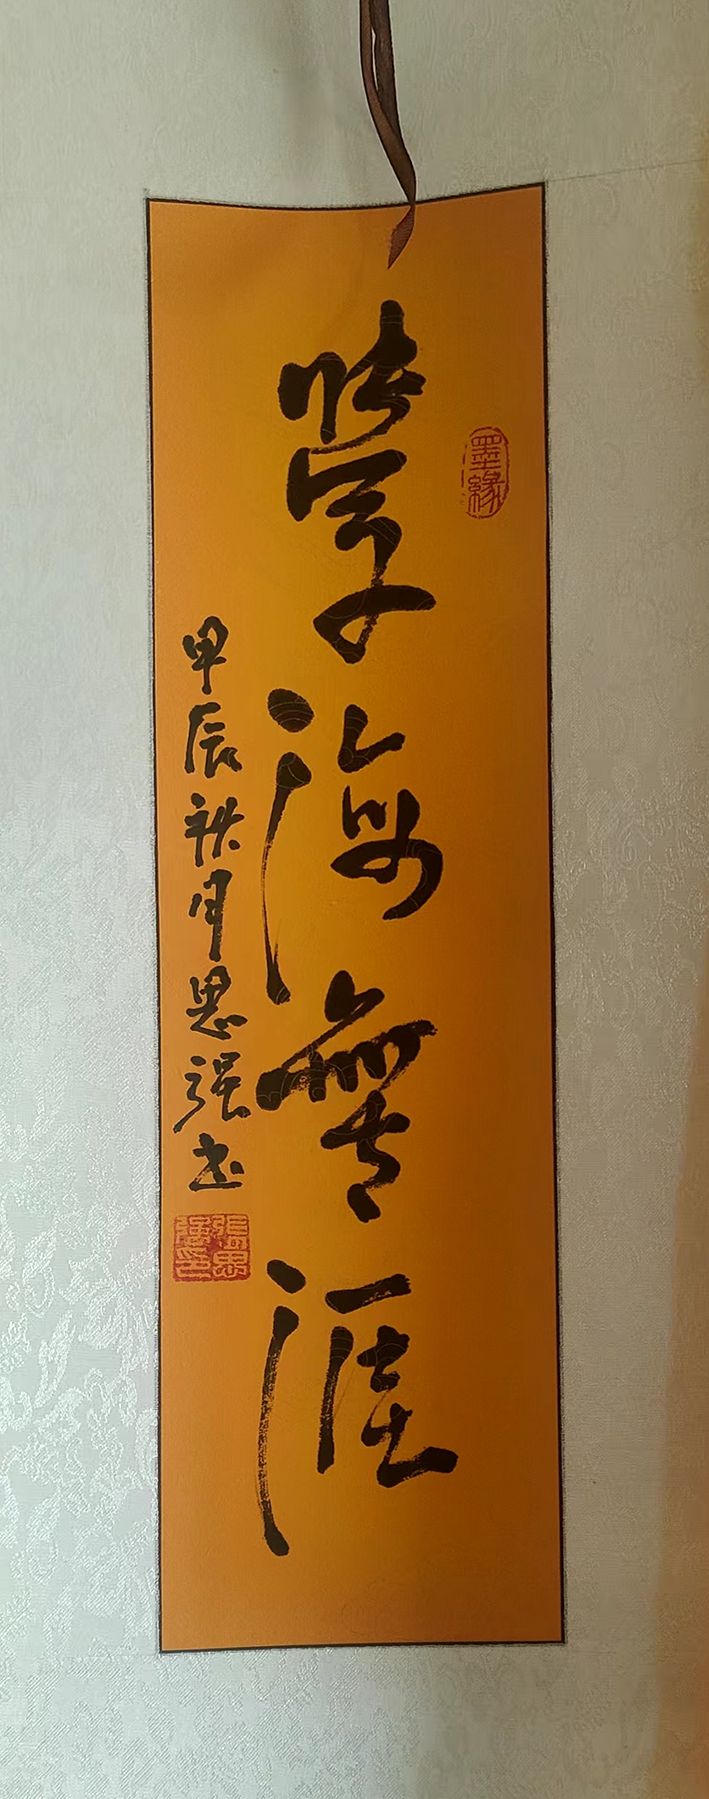 學海無涯
墨緣
甲辰秋月思强書
張思强印